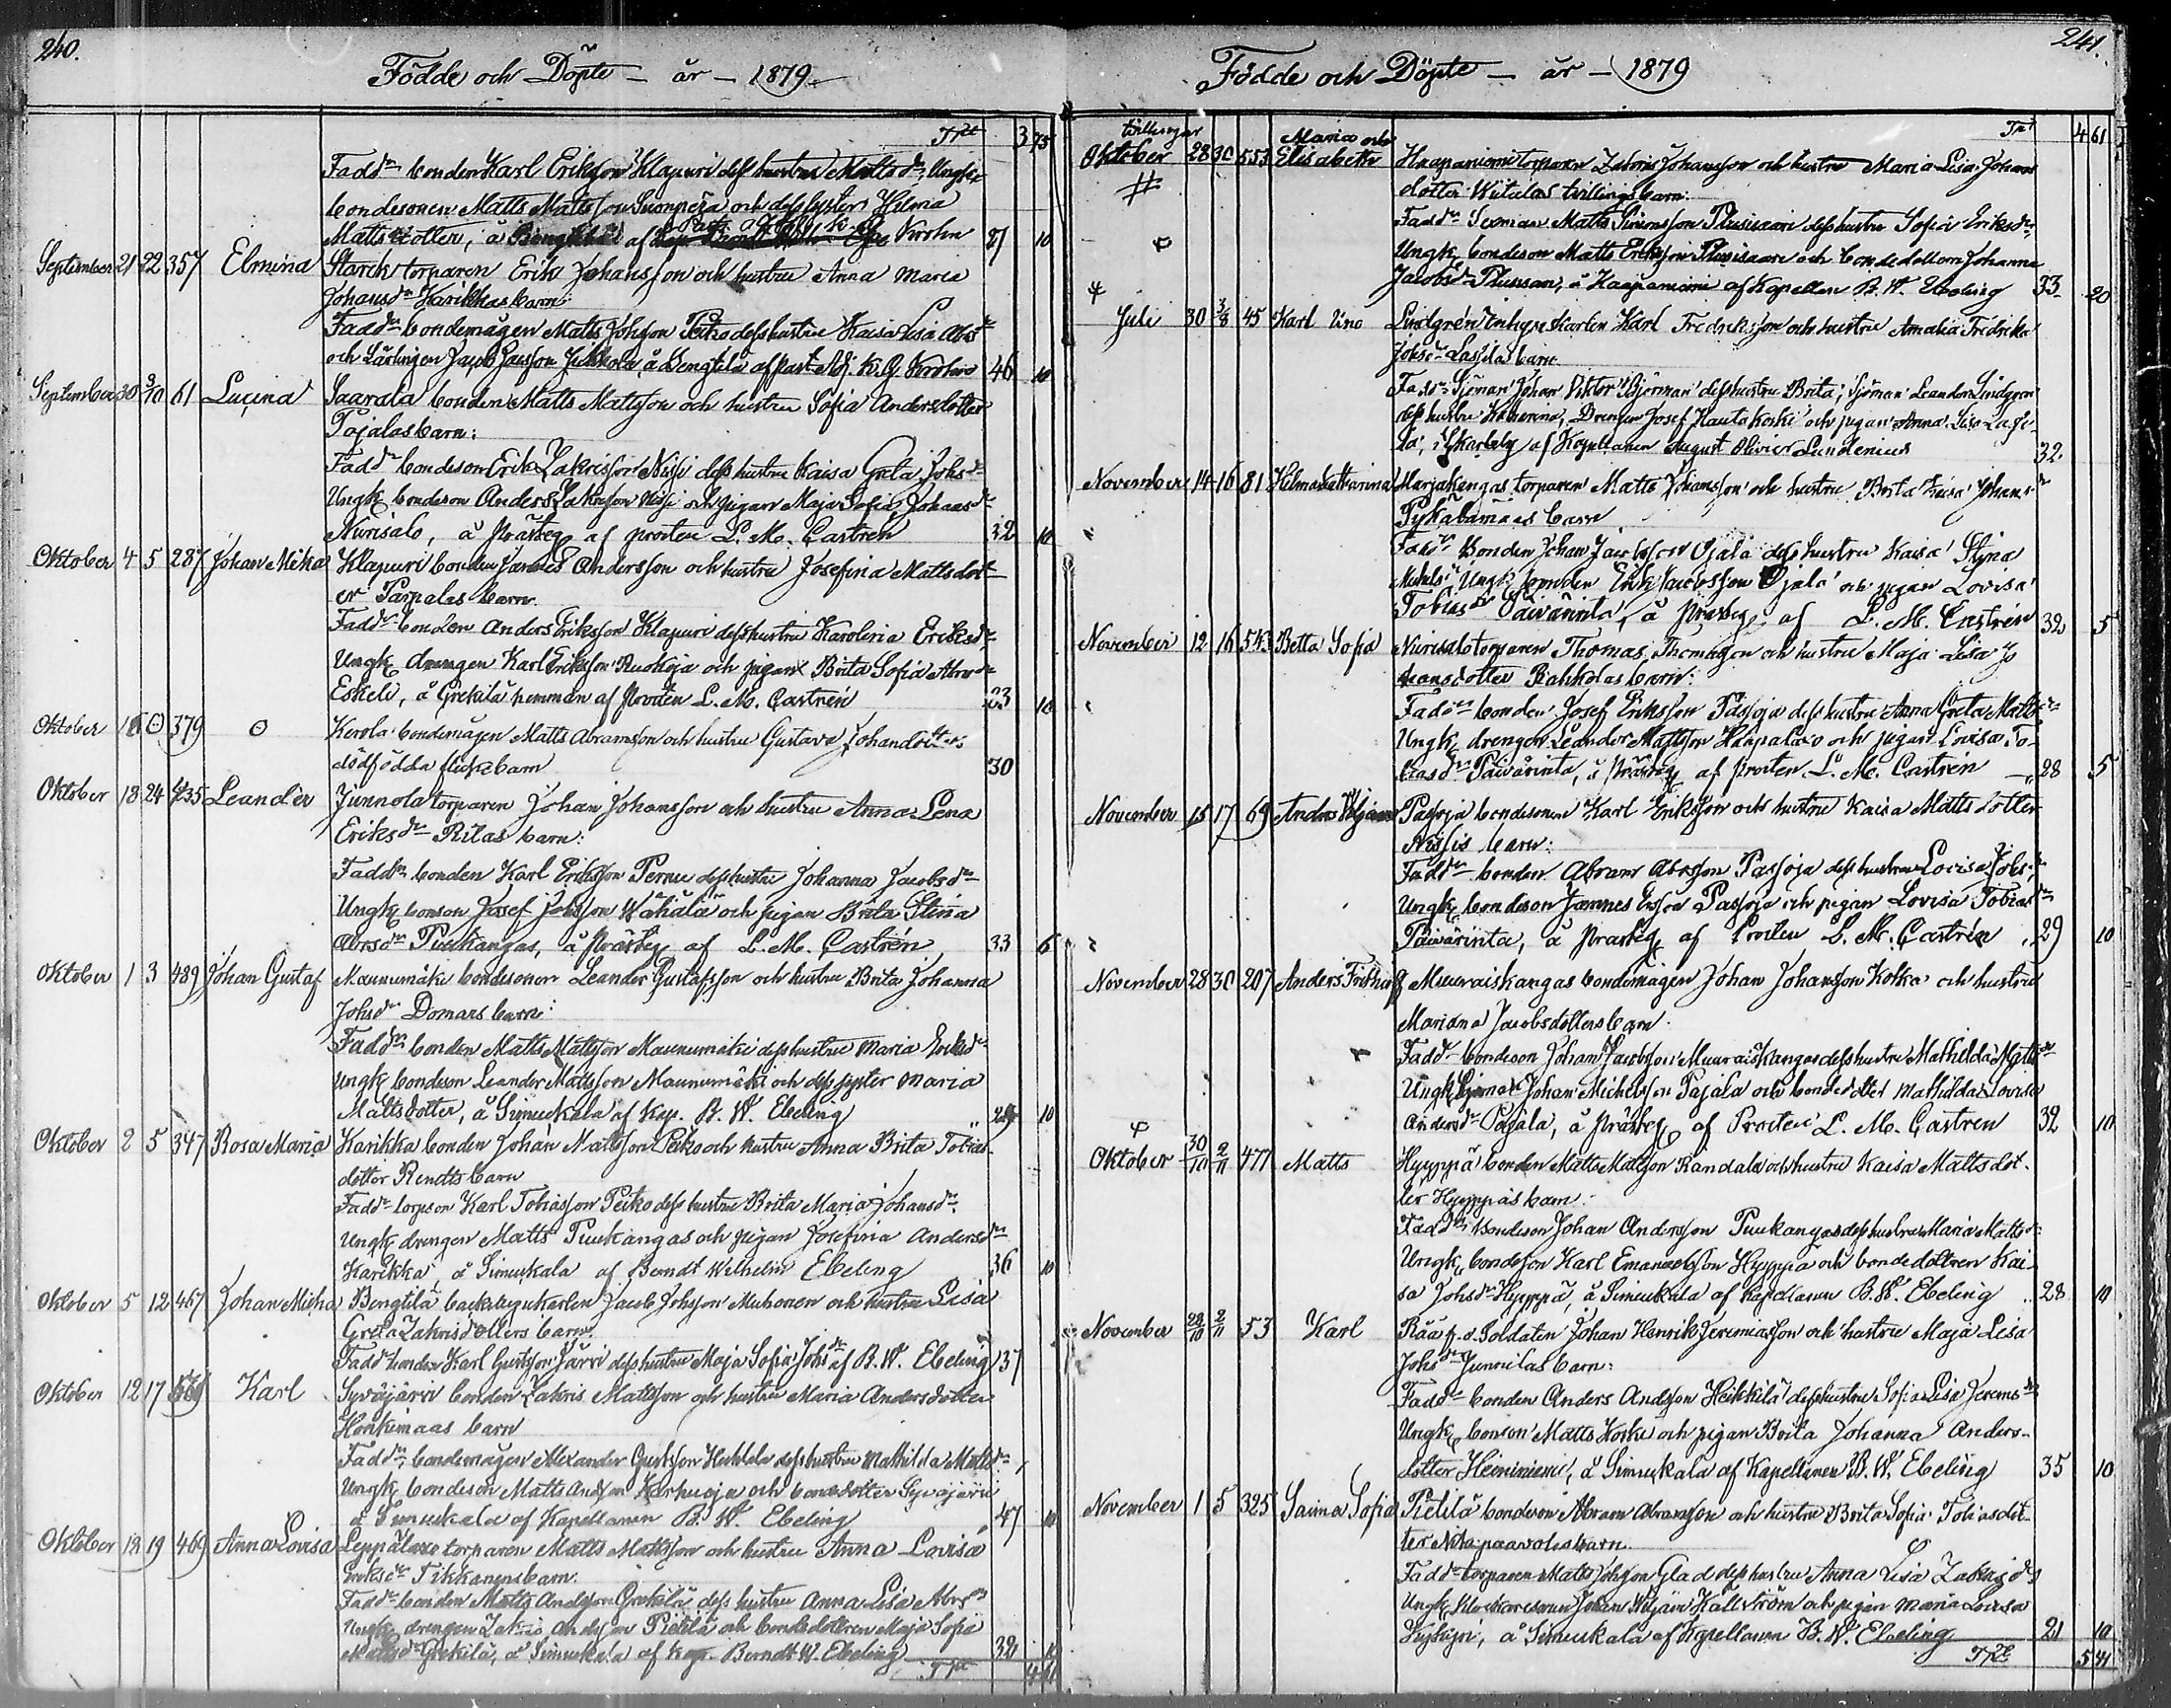 240.
Födde och Döpte – år – 1879
Trt 3 75
Fadd:r bonden Karl Eriksson Klapuri dess hustru Mattsd:r, Ungk.
bondesonen Matts Mattsson och dess syster Hilma
Mattsdotter, å Bengtilä af Krohn 27 10
September 21 22 357 Elmina Starck torparen Erik Johansson och hustru Anna Maria
Johansd:r Karikkas barn:
Fadd:r bondemågen Matts Johsson Peiko dess hustru Kaisa Lisa Abrsd:r
och Lärlingen Jacob Jacsson Jukkola, å Bengtilä af Past. Adj. K. G. Krohn 46 10
September 30 3/10 61 Lucina Saarala bonden Matts Mattsson och hustru Sofia Andersdotter
Pajalas barn:
Fadd:r bondeson Erik Zakrisson Nissi dess hustru Kaisa Greta Johsd:r
Ungk. bondeson Anders Zakrisson Nissi och pigan Maja Sofia Johansd:r
Nurisalo, å Prästeg. af prosten L. M. Castrén 32 10
Oktober 4 5 287 Johan Mika Klapuri bonden Jannes Andersson och hustru Josefina Mattsdot-
er Parpalas barn
Fadd:r bonden Anders Eriksson Klapuri dess hustru Karolina Eriksd:r
Ungk. drengen Karl Eriksson Ruokoja och pigan Brita Sofia Abrsd:r
Eskeli, å Grekilä hemman af Prosten L. M. Castrén 23 10
Oktober 18 0 379 0 Kerola bondemågen Matts Abramsson och hustru Gustava Johandotters
dödfödda flickebarn 30
Oktober 18 24 435 Leander Junnola torparen Johan Johansson och hustru Anna Lena
Eriksd:r Ritas barn:
Fadd:r bonden Karl Eriksson Pernu dess hustru Johanna Jacobsd:r
Ungk. bonson Josef Johsson Wähälä och pigan Brita Stina
Abrsd:r Puukangas, å Prästeg. af L. M. Castrén 33 6
Oktober 1 3 489 Johan Gustaf Maunumäki bondesonen Leander Gustafsson och hustru Brita Johanna
Johsd:r Domars barn:
Fadd:r bonden Matts Mattsson Maunumäki dess hustru Maria Eriksd:r
Ungk. bondeson Leander Mattsson Maunumäki och dess syster Maria
Mattsdotter, å Simukala af Kap. B. W. Ebeling 24 10
Oktober 2 5 347 Rosa Maria Karikka bonden Johan Mattsson Peiko och hustru Anna Brita Tobias-
dotter Rentts barn
Fadd:r torpson Karl Tobiasson Peiko dess hustru Brita Maria Johansd:r
Ungk. drengen Matts Puukangas och pigan Josefina Andersd:r
Karikka, å Simukala af Berndt Wilhelm Ebeling 36 10
Oktober 5 12 467 Johan Micha Bengtilä backstugukarlen Jacob Johsson Muhonen och hustru Lisa
Greta Zakrisdotters barn:
Fadd:r bonden Karl Gustsson Järvi dess hustru Maja Sofia Johsd:r af B. W. Ebeling 37
Oktober 12 17 Karl Syväjärvi bonden Zakris Mattsson och hustru Maria Andersdotter
Honkimaas barn
Fadd:r bondemågen Alexander Gustsson Heikkilä dess hustru Mathilda Mattsd:r
Ungk. bondeson Matts Andsson Karhuoja och bondedotter Syväjärvi
å Simukala af Kapellanen B. W. Ebeling 47 10
Oktober 12 19 469 Anna Lovisa Leppälaxo torparen Matts Mattsson och hustru Anna Lovisa
Eriksd:r Tikkanens barn.
Fadd:r bonden Matts Andsson Grekilä dess hustru Anna Lisa Abrsd:r
Ungk. drengen Zakris Andsson Pietilä och bondedottren Maja Sofia
Mattsd:r Grekilä, å Simukala af Kap. Berndt W. Ebeling 32 10
Trt 4 61
241.
Födde och Döpte – år – 1879
Trt 4 61
tvillingar Maria och
Oktober 28 30 553 Elisabeth Haapaniemi torparen Zakris Johansson och hustru Maria Lisa Johans
dotter Wiitalas tvillingbarn:
Fadd:r Sexman Matts Simonsson Plusisaari dess hustru Sofia Eriksd:r,
Ungk. bondeson Matts Eriksson Plusisaari och bondedottern Johanna
Jacobsd:r Plusisaari, å Haapaniemi af Kapellan B. W. Ebeling 33 20
Juli 30 3/8 45 Karl Uno Lindgrén Inhyseskarlen Karl Fredriksson och hustru Amalia Fredrika
Johsd:r Lassilas barn.
Fadd:r Sjöman Johan Viktor Björman dess hustru Brita, Sjöman Leander Lindgren
dess hustru Katarina, Drengen Josef Hautakoski och pigan Anna Lisa Lassi-
la, i Ykarleby af Kapellanen August Olivier Lundenius 32.
November 14 16 81 Hilma Katharina Marjakangas torparen Matts Johansson och hustru Brita Kaisa Johansd:r
Pykälämäas barn
Fadd:r Bonden Johan Jacobsson Ojala dess hustru Kaisa Stina
Michelsd:r Ungk. bonden Erik Jacobsson Ojala och pigan Lovisa
Tobiasd:r Päivärinta, å Prästeg. af L. M. Castrén 32 5
November 12 16 543 Betta Sofia Nurisalo torparen Thomas Thomasson och hustru Maja Lisa Jo
hansdotter Rahkolas barn:
Fadd:r bonden Josef Eriksson Passoja dess hustru Anna Greta Mattsd:r
Ungk. drengen Leander Mattsson Haapalaxo och pigan Lovisa To-
biasd:r Päivärinta, å Prästeg. af Prosten L. M. Castrén 28 5
November 15 17 69 Anders Viljam Passoja bondesonen Karl Eriksson och hustru Kaisa Mattsdotter
Nissis barn:
Fadd:r bonden Abram Abrsson Passoja dess hustru Lovisa Johsd:r
Ungk. bondeson Jannes Ersson Passoja och pigan Lovisa Tobiasd:r
Päivärinta, å Prästeg. af Prosten L. M. Castrén 29 10
November 28 30 207 Anders Frithiof Muuraiskangas bondemågen Johan Johansson Kotka och hustru
Mariana Jacobsdotters barn.
Fadd:r bondeson Johan Jacobsson Muuraiskangas dess hustru Mathilda Mattsd:r
Ungk. Sjöman Johan Michelsson Pajala och bondedotter Mathilda Lovisa
Andersd:r Pajala, å Prästeg. af Prosten L. M. Castren 32 10
Oktober 30/10 2/11 477 Matts Hyyppä bonden Matts Mattsson Randala och hustru Kaisa Mattsdot-
ter Hyyppäs barn:
Fadd:r Bondeson Johan Andersson Puukangas dess hustru Maria Mattsd:r
Ungk. bondeson Karl Emanuelsson Hyyppä och bondedottren Kai-
sa Johsd:r Hyyppä, å Simukala af Kapellanen B. W. Ebeling 28 10
November 28/10 2/11 53 Karl Rääf f.d. Soldaten Johan Henrik Jeremiasson och hustru Maja Lisa
Johsd:r Junnilas barn:
Fadd:r bonden Anders Andsson Heikkilä dess hustru Sofia Lisa Jeremsd:r
Ungk. bonson Matts Koski och pigan Brita Johanna Anders-
dotter Heininiemi, å Simukala af Kapellanen B. W. Ebeling 35 10
November 1 5 325 Saima Sofia Pietilä bondeson Abram Abramsson och hustru Brita Sofia Tobiasdot-
ter barn.
Fadd:r torparen Matts Johsson Glad dess hustru Anna Lisa Zakrisd:r
Ungk. Johan Wiljam Källström och pigan Maria Lovisa
å Simukala af Kapellanen B. W. Ebeling 21 10
Trt 5 71